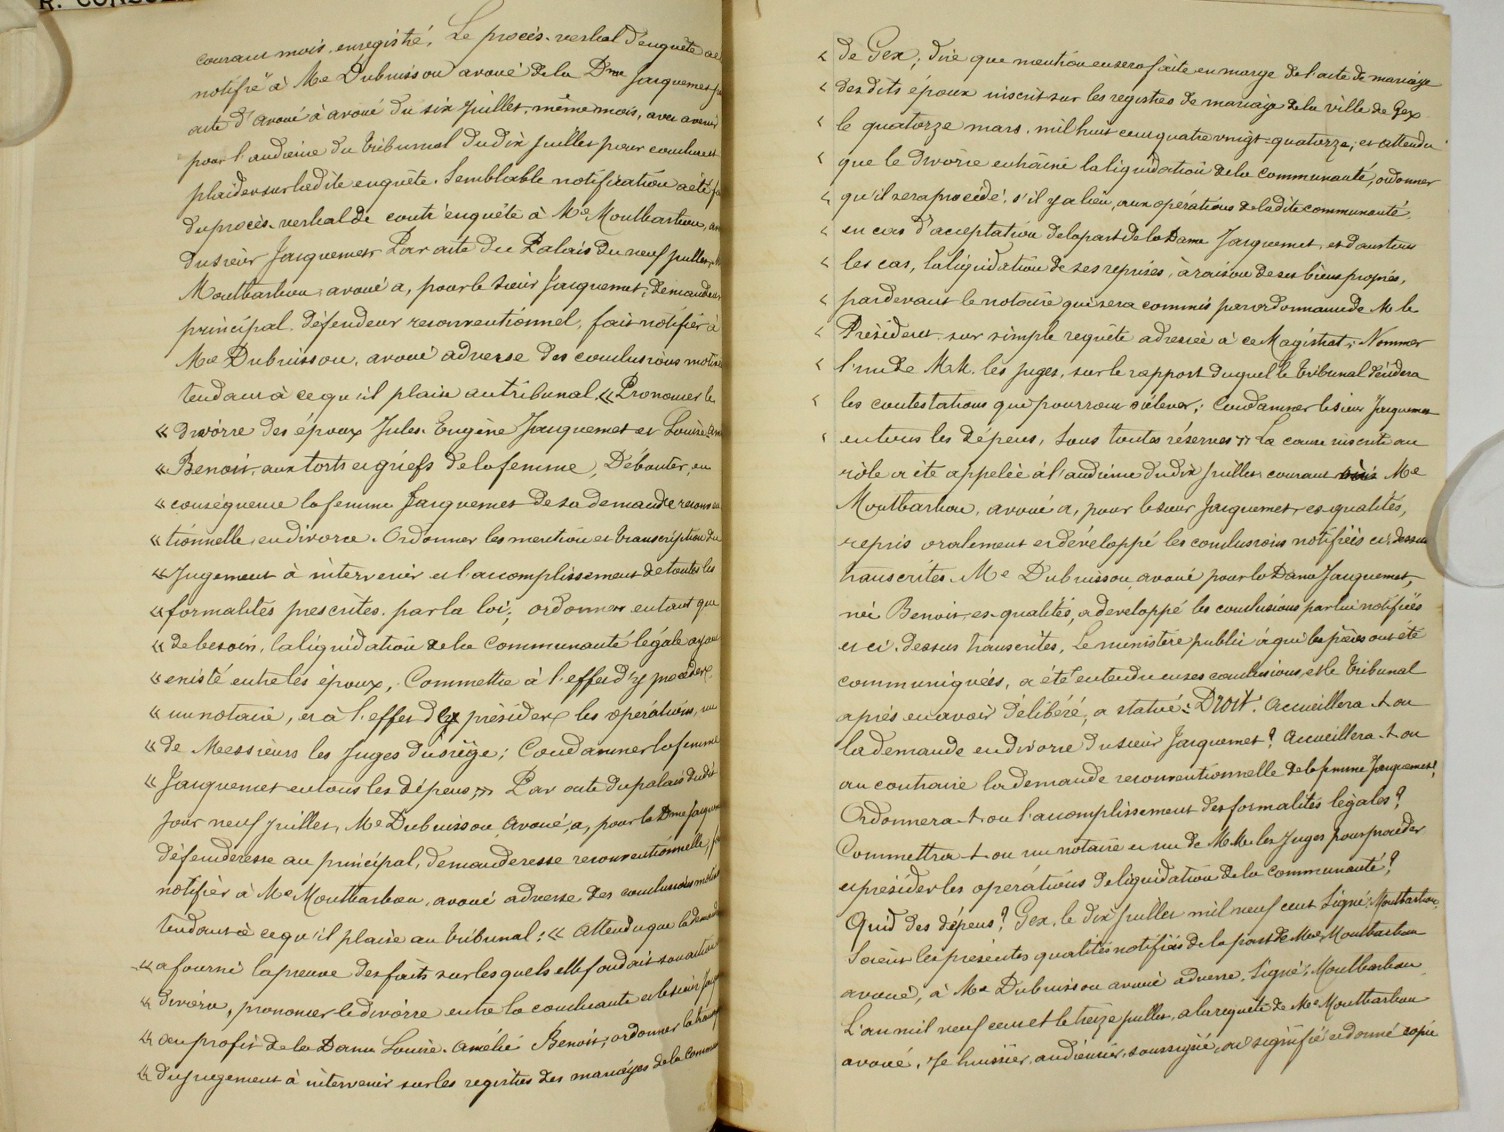 R. CONSE
courant mois, enregistré. Le procès-verbal d'enquête a é
notifié à Me Dubuisson avoué de la Dme Jacquemet
acte d'avoué à avoué du six Juillet, même mois, avec avenir
pour l'audience du Tribunal du dix juillet pour conclure et
plaider sur ladite enquête. Semblable notification a été
du procès-verbal de contr'enquête à Me Montbarbon, a
du sieur Jacquemet. Par acte du Palais du neuf juillet, M
Montbarbon avoué a, pour le sieur Jacquemet, demandeur
principal, défendeur reconventionnel, fait notifier à
Me Dubuisson, avoué adverse des conclusions motiv
tendant à ce qu'il plaise au tribunal « Prononcer le
« divorce des époux Jules Eugène Jacquemet et Louise
« Benoit, aux torts et griefs de la femme, Débouter, en
« conséquence la femme Jacquemet de sa demande reconven
« tionnelle en divorce. Ordonner les mention et transcription du
« Jugement à intervenir et l'accomplissement de toutes les
« formalités prescrites par la loi; ordonner en tant que
« de besoin, la liquidation de la Communauté légale ayant
« existé entre les époux, Commettre à l'effet d'y procéder
« un notaire, et à l'effet d'y présider les opérations, un
« de Messieurs les Juges du siège; Condamner la femme
« Jacquemet en tous les dépens » Par acte du palais du dit
jour neuf juillet, Me Dubuisson avoué, a, pour la Dme Jacquem
défenderesse au principal, demanderesse reconventionnelle, f
notifier à Me Montbarbon, avoué adverse des conclusions motiv
tendant à ce qu'il plaise au tribunal: « Attendu que la deman
« a fourni la preuve des faits sur lesquels elle fondait son action
« divorce, prononcer le divorce entre la concluante et le sieur Jacq
« au profit de la Dame Louise Amélie Benoit; ordonner la trans
« du jugement à intervenir sur les registres des mariages de la Commune
« de Gex; dire que mention en sera faite en marge de l'acte de mariage
« desdits époux inscrit sur les registres de mariage de la ville de Gex
« le quatorze mars, mil huit cent quatre vingt-quatorze; et attendu
« que le divorce entraine la liquidation de la communauté, ordonner
« qu'il sera procédé, s'il y a lieu, aux opérations de ladite communauté
« en cas d'acceptation de la part de la Dame Jacquemet, et dans tous
« les cas, la liquidation de ses reprises, à raison de ses biens propres,
« pardevant le notaire qui sera commis par ordonnance de M. le
« Président sur simple requête adressée à ce Magistrat; Nommer
« l'un de M.M. les juges, sur le rapport duquel le Tribunal décidera
« les contestations qui pourront s'élever; Condamner le sieur Jacquemet
« en tous les dépens, sous toutes réserves » La cause inscrite au
rôle a été appelée à l'audience du dix juillet courant mois Me
Montbarbon, avoué a, pour le sieur Jacquemet, es-qualités,
repris oralement et développé les conclusions notifiées ci-dessus
transcrites. Me Dubuisson avoué pour la Dame Jacquemet,
née Benoit, es-qualités, a développé les conclusions par lui notifiées
et ci-dessus transcrites, Le ministère public à qui les pièces ont été
communiquées, a été entendu en ses conclusions, et le Tribunal
après en avoir délibéré, a statué: Droit. Accueillera-t-on
la demande en divorce du sieur Jacquemet? Accueillera-t-on
au contraire la demande reconventionnelle de la femme Jacquemet?
Ordonnera-t-on l'accomplissement des formalités légales?
Commettra-t-on un notaire et un de M.M. les Juges pour procéder
et présider les opérations de liquidation de la communauté?
Quid des dépens? Gex, le dix juillet mil neuf cent Signé: Montbarbon.
Soient les présentes qualités notifiées de la part de Me Montbarbon
avoué, à Me Dubuisson avoué adverse. Signé: Montbarbon
L'an mil neuf cent et le treize juillet, à la requête de Me Montbarbon
avoué, Je huissier, audiencier, soussigné, ai signifié et donné copie